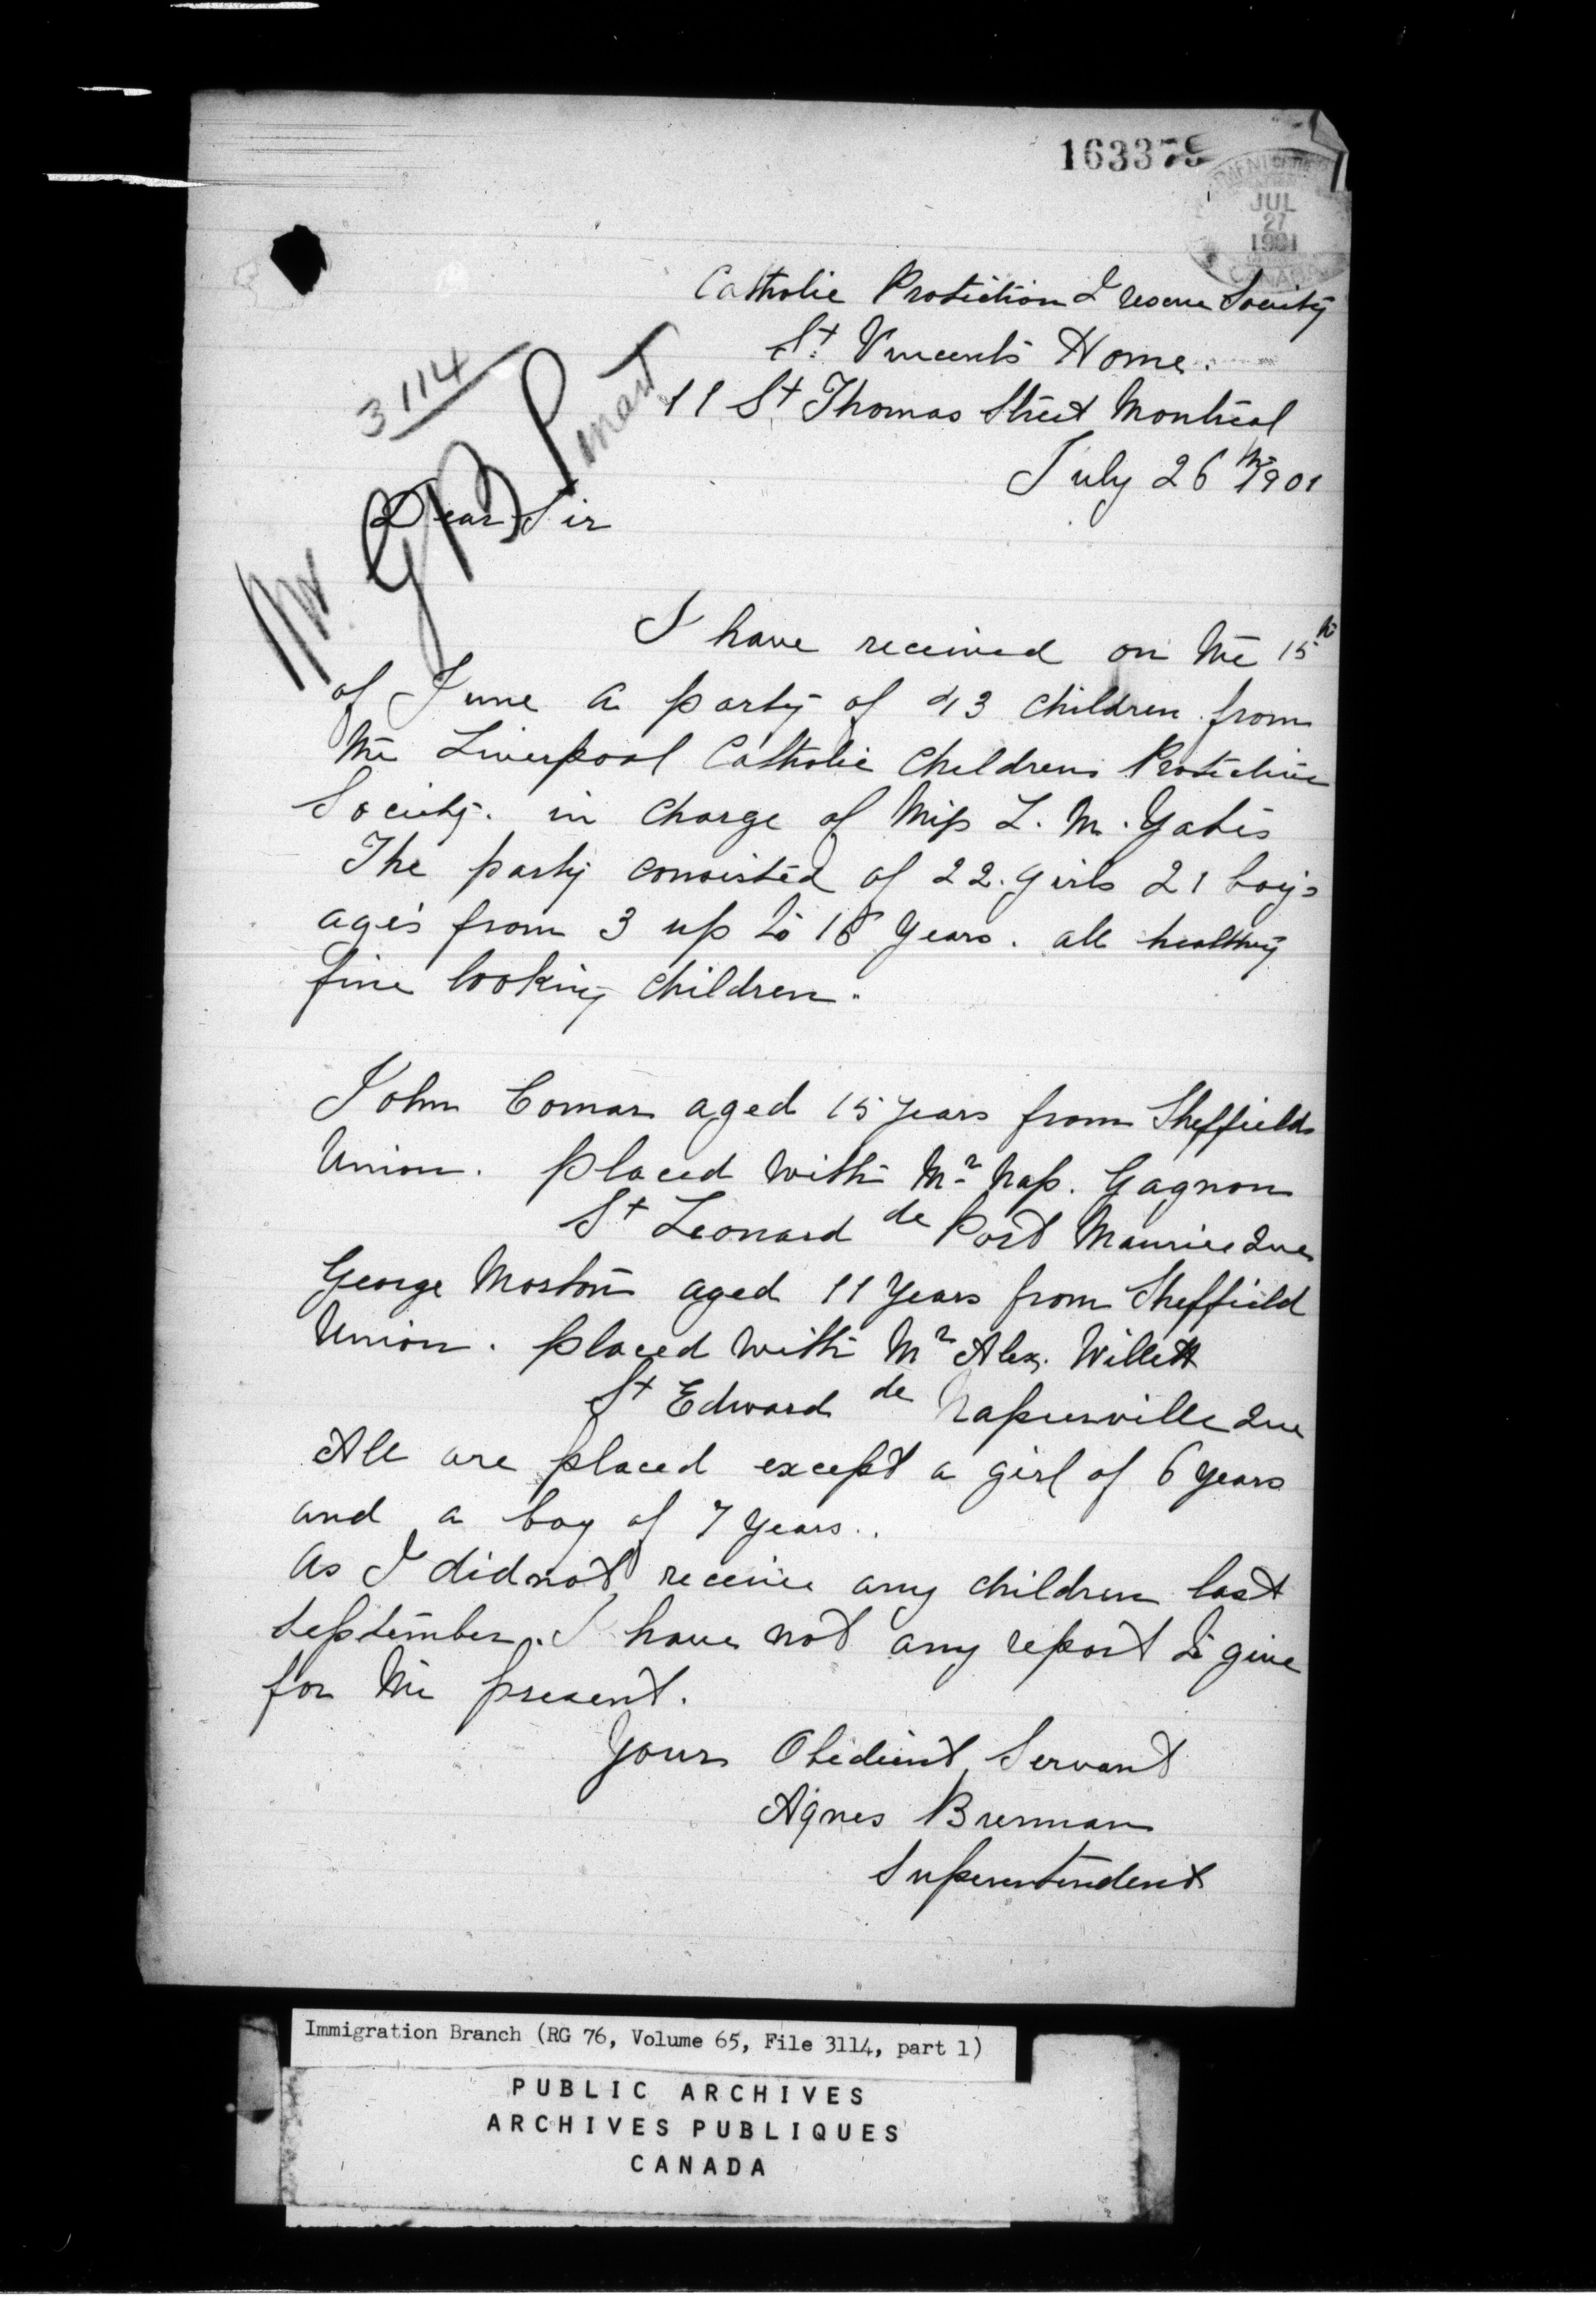 163379
JUL
27
1901
CANADA
Catholic Protection & rescue Society
St Vincents Home.
11 St Thomas Street Montreal
July 26th 1901
3114
Mr G B Pinart
Dear Sir
I have received on the 15th
of June a party of 43 children from
the Liverpool Catholic Childrens Protective
Society. in charge of Miss L. M. Yates
The party consisted of 22 girls 21 boys
ages from 3 up to 16 years. all healthy
fine looking children.
John Comar aged 15 years from Sheffield
Union. placed with Mr Nap. Gagnon
St Leonard de Port Maurice Que
George Morton aged 11 years from Sheffield
Union. placed with Mr Alex. Willett
St Edward de Napierville Que
All are placed except a girl of 6 years
and a boy of 7 years..
As I did not receive any children last
September. I have not any report to give
for the present.
Your Obedient Servant
Agnes Brennan
Superintendent
Immigration Branch (RG 76, Volume 65, File 3114, part 1)
PUBLIC ARCHIVES
ARCHIVES PUBLIQUES
CANADA